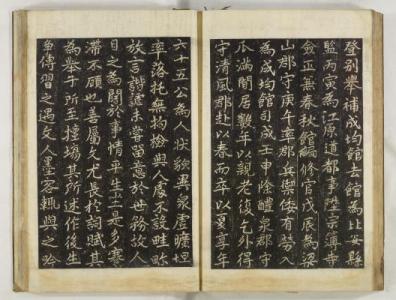 登別舉補成均館去館為比安縣
監丙寅為江原道都事陞宗簿寺
僉正兼春秋館編修官戊辰為梁
山郡守庚午率郡兵禦倭有勞入
為成均館司成壬申除醴泉郡守
瓜滿閒居數年以親老復乞外得
守清風郡赴以春而卒以夏享年
六十五公為人狀貌異衆虛曠坦
率落托無拘檢與人處不設畦畛
放言諧謔未嘗留意於世務故人
目之為闊於事情平生坐是多蹇
滯不顧也善屬文尤長於詞賦其
為舉子所至擅場其所述作後生
爭傳習之遇文人墨客輒與之吟